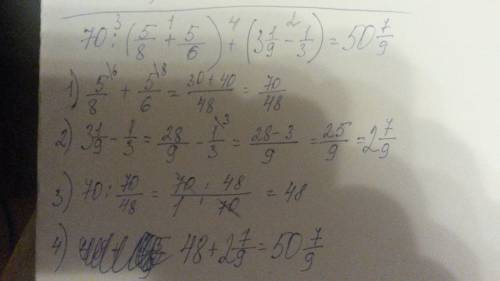 70 : (5/8 + 5/6) + (3 1/9 - 1/3) = 50 7/9
1) 5/8 + 5/6 = 30+40/48 = 70/48
2) 3 1/9 - 1/3 = 28/9 - 1/3 = 28-3/9 = 25/9 = 2 7/9
3) 70 : 70/48 = 70 · 48/1 · 70 = 48
4) 48 + 2 7/9 = 50 7/9